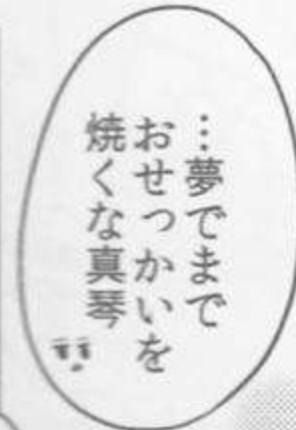 …夢でまで
おせっかいを
焼くな真琴